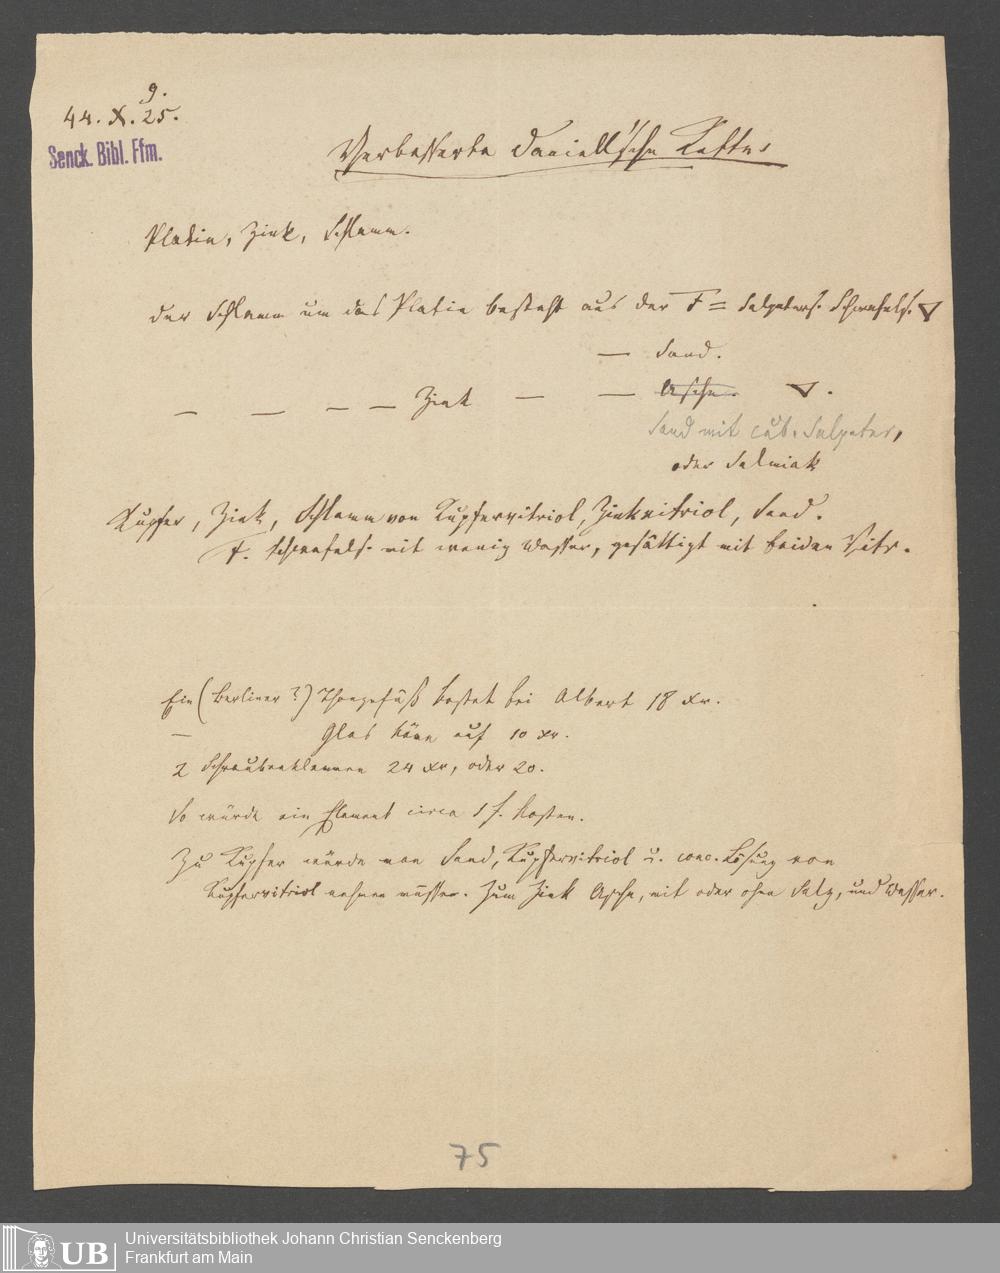 9.
44. X. 25.
Senck. Bibl. Ffm.
Verbesserte Daniell'sche Kette.
Platin, Zink, Schlamm.
der Schlamm um das Platin besteht aus der F = Salpeters. Schwefels. ▽
— Sand.
— — — — Zink — — Asche. ▽.
Sand mit cub. Salpeter,
oder Salmiak
Kupfer, Zink, Schlamm von Kupfervitriol, Zinkvitriol, Sand.
F. Schwefels. mit wenig Wasser, gesättigt mit beiden Vitr.
Ein (Berliner?) Thongefäß kostet bei Albert 18 xr.
— Glas käme auf 10 xr.
2 Schraubenklemmen 24 xr, oder 20.
So würde ein Element circa 1 f. kosten.
Zu Kupfer würde man Sand, Kupfervitriol u. conc. Lösung von
Kupfervitriol nehmen müssen. Zum Zink Asche, mit oder ohne Salz, und Wasser.
75
UB
Universitätsbibliothek Johann Christian Senckenberg
Frankfurt am Main